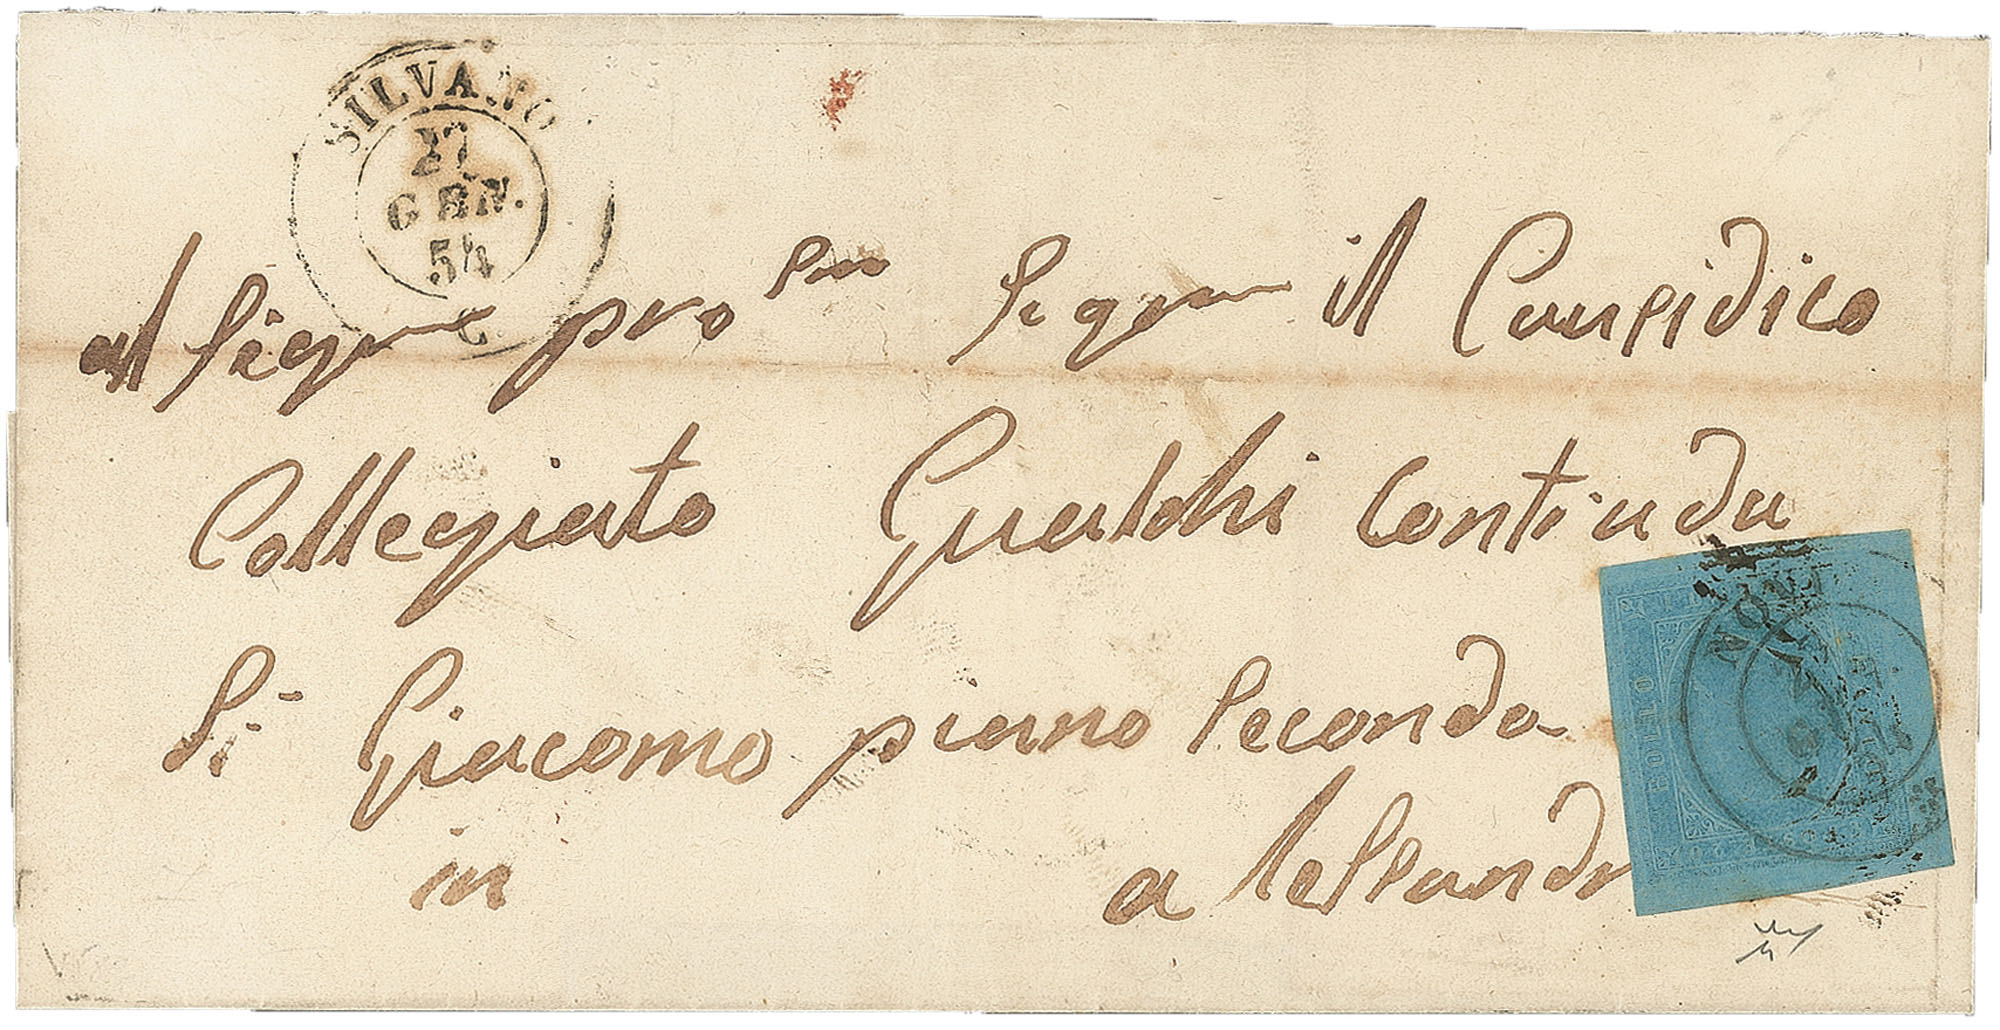 SILVANO
27
GEN.
54
C.
al Sigr pro Sigr il Causidico
Collegiato Gualchi Contrada
Sn Giacomo piano Secondo
in alessandr
BOLLO